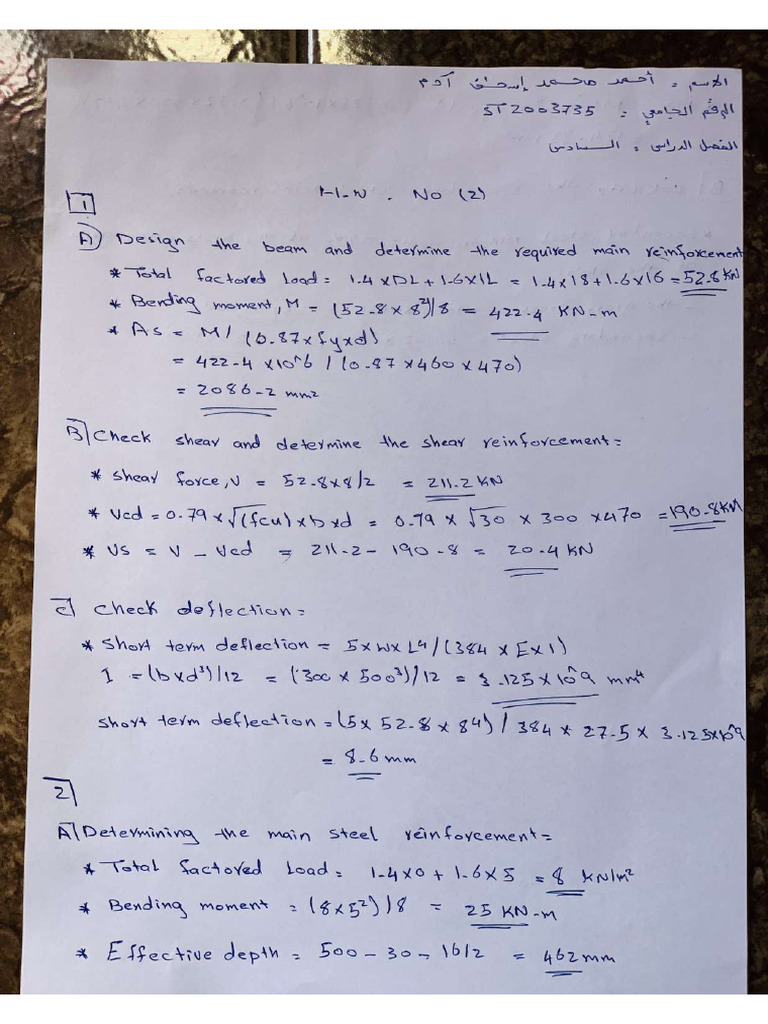 الاسم : أحمد محمد إسحاق آدم
الرقم الجامعي : ST2003735
الفصل الدراسي : السادس
H.W. No (2)
1
A) Design the beam and determine the required main reinforcement
* Total factored Load = 1.4 x DL + 1.6 x IL = 1.4 x 18 + 1.6 x 16 = 52.8 KN
* Bending moment, M = (52.8 x 8²)/8 = 422.4 KN-m
* As = M / (0.87 x fy x d)
= 422.4 x 10^6 / (0.87 x 460 x 470)
= 2086.2 mm²
B) Check shear and determine the shear reinforcement =
* shear force, V = 52.8 x 8/2 = 211.2 KN
* Vcd = 0.79 x √(fcu) x b x d = 0.79 x √30 x 300 x 470 = 190.8 KN
* Vs = V - Vcd = 211.2 - 190.8 = 20.4 KN
C) Check deflection =
* Short term deflection = 5 x W x L⁴ / (384 x E x I)
I = (b x d³)/12 = (300 x 500³)/12 = 3.125 x 10^9 mm⁴
short term deflection = (5 x 52.8 x 8⁴) / 384 x 27.5 x 3.125 x 10^9
= 8.6 mm
2
A) Determining the main steel reinforcement =
* Total factored Load = 1.4 x 0 + 1.6 x 5 = 8 KN/m²
* Bending moment = (8 x 5²)/8 = 25 KN-m
* Effective depth = 500 - 30 - 16/2 = 462 mm